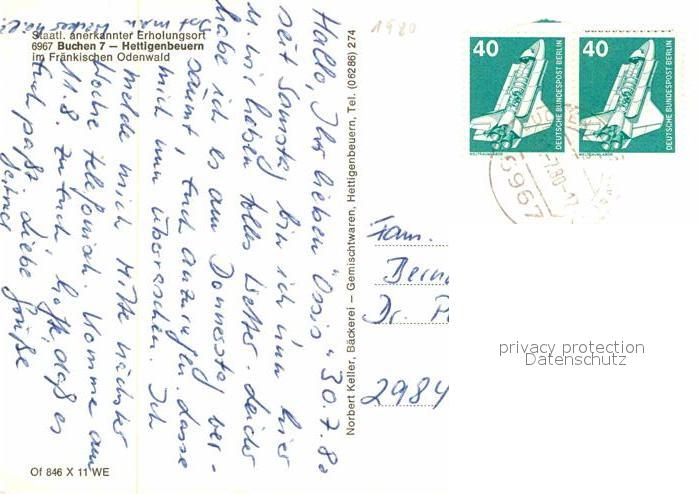 Staatl. anerkannter Erholungsort
6967 Buchen 7 — Hettigenbeuern
im Fränkischen Odenwald
Hallo, Ihr lieben "Ossis" 30.7.80
seit Samstag bin ich nun hier
u. wir haben tolles Wetter. Leider
habe ich es am Donnerstag ver-
säumt, Euch anzurufen. Lasse
mich nun überraschen. Ich
melde mich Mitte nächster
Woche telefonisch. Komme am
11.8. zu Euch, hoffe, daß es
Euch paßt. Liebe Grüße
Of 846 X 11 WE
Norbert Keller, Bäckerei — Gemischtwaren, Hettigenbeuern, Tel. (06286) 274
1980
40
DEUTSCHE BUNDESPOST BERLIN
WELTRAUMLABOR
40
DEUTSCHE BUNDESPOST BERLIN
WELTRAUMLABOR
6967
Fam.
Dr.
2984
privacy protection
Datenschutz